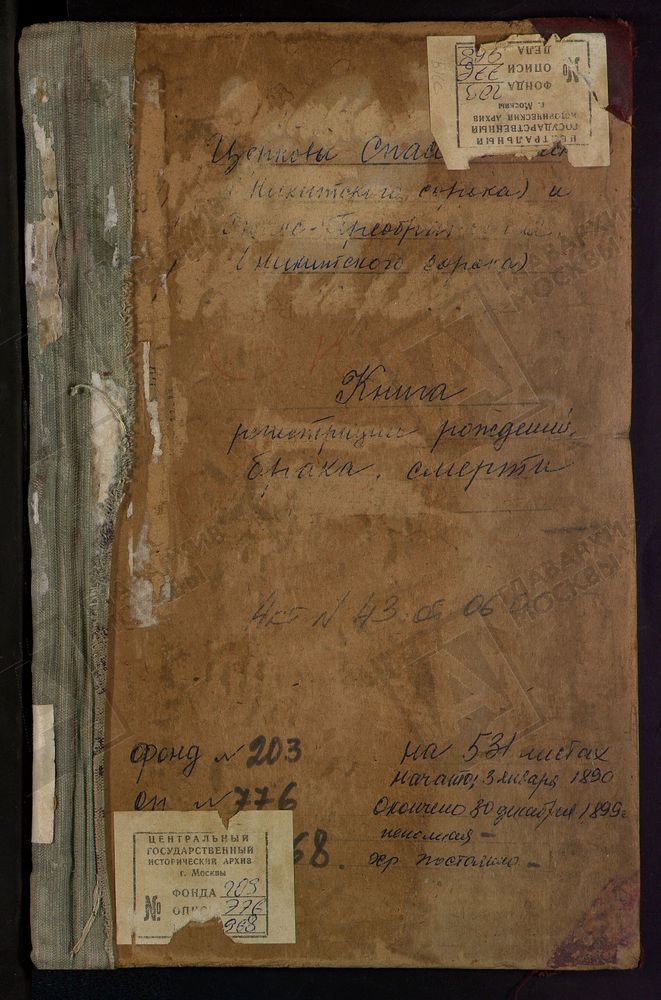 ДЕЛА 968
№ ОПИСИ 776
ФОНДА 203
г. Москвы
ИСТОРИЧЕСКИЙ АРХИВ
ГОСУДАРСТВЕННЫЙ
ЦЕНТРАЛЬНЫЙ
Церковь Спас
(Никитского сорока) и
Преобра
(Никитского сорока)
Книга
регистрации рождений,
брака, смерти
Акт N 43
фонд N 203
оп N 776
68.
на 531 листах
Начато; 3 января 1890
Окончено 30 декабря 1899г
неполная –
хр постоянно –
ЦЕНТРАЛЬНЫЙ
ГОСУДАРСТВЕННЫЙ
ИСТОРИЧЕСКИЙ АРХИВ
г. Москвы
ФОНДА 203
№ ОПИС 776
968
ГЛАВАРХИВ
МОСКВЫ